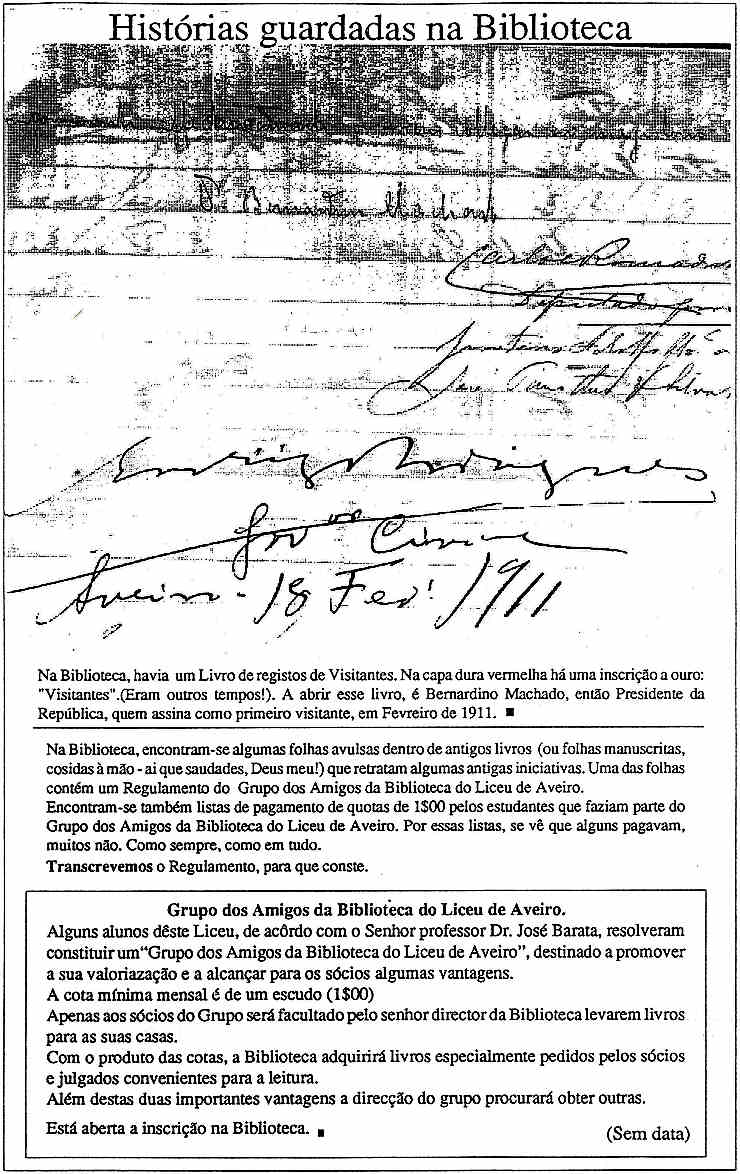 Histórias guardadas na Biblioteca
Dr. Bernardino Machado
Deputado por
Rodrigues
Gov.or Civil
Aveiro - 18 Fev.! 1911
Na Biblioteca, havia um Livro de registos de Visitantes. Na capa dura vermelha há uma inscrição a ouro:
"Visitantes".(Eram outros tempos!). A abrir esse livro, é Bernardino Machado, então Presidente da
República, quem assina como primeiro visitante, em Fevreiro de 1911. ■
Na Biblioteca, encontram-se algumas folhas avulsas dentro de antigos livros (ou folhas manuscritas,
cosidas à mão - ai que saudades, Deus meu!) que retratam algumas antigas iniciativas. Uma das folhas
contém um Regulamento do Grupo dos Amigos da Biblioteca do Liceu de Aveiro.
Encontram-se também listas de pagamento de quotas de 1$00 pelos estudantes que faziam parte do
Grupo dos Amigos da Biblioteca do Liceu de Aveiro. Por essas listas, se vê que alguns pagavam,
muitos não. Como sempre, como em tudo.
Transcrevemos o Regulamento, para que conste.
Grupo dos Amigos da Biblioteca do Liceu de Aveiro.
Alguns alunos dêste Liceu, de acôrdo com o Senhor professor Dr. José Barata, resolveram
constituir um“Grupo dos Amigos da Biblioteca do Liceu de Aveiro”, destinado a promover
a sua valoriazação e a alcançar para os sócios algumas vantagens.
A cota mínima mensal é de um escudo (1$00)
Apenas aos sócios do Grupo será facultado pelo senhor director da Biblioteca levarem livros
para as suas casas.
Com o produto das cotas, a Biblioteca adquirirá livros especialmente pedidos pelos sócios
e julgados convenientes para a leitura.
Além destas duas importantes vantagens a direcção do grupo procurará obter outras.
Está aberta a inscrição na Biblioteca. ■
(Sem data)